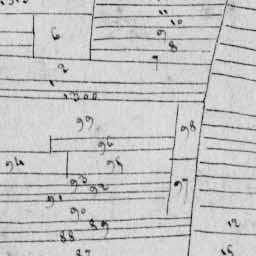 11
10
9
6
8
7
2
1
1300
99
98
96
94
95
93
92
97
91
90
89
12
88
87